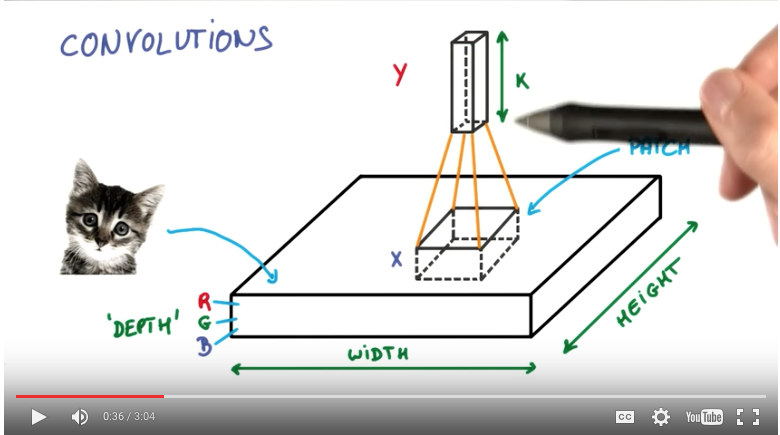 CONVOLUTIONS
Y
K
PATCH
X
R
'DEPTH' G
B
WIDTH
HEIGHT
0:36 / 3:04
CC
YouTube